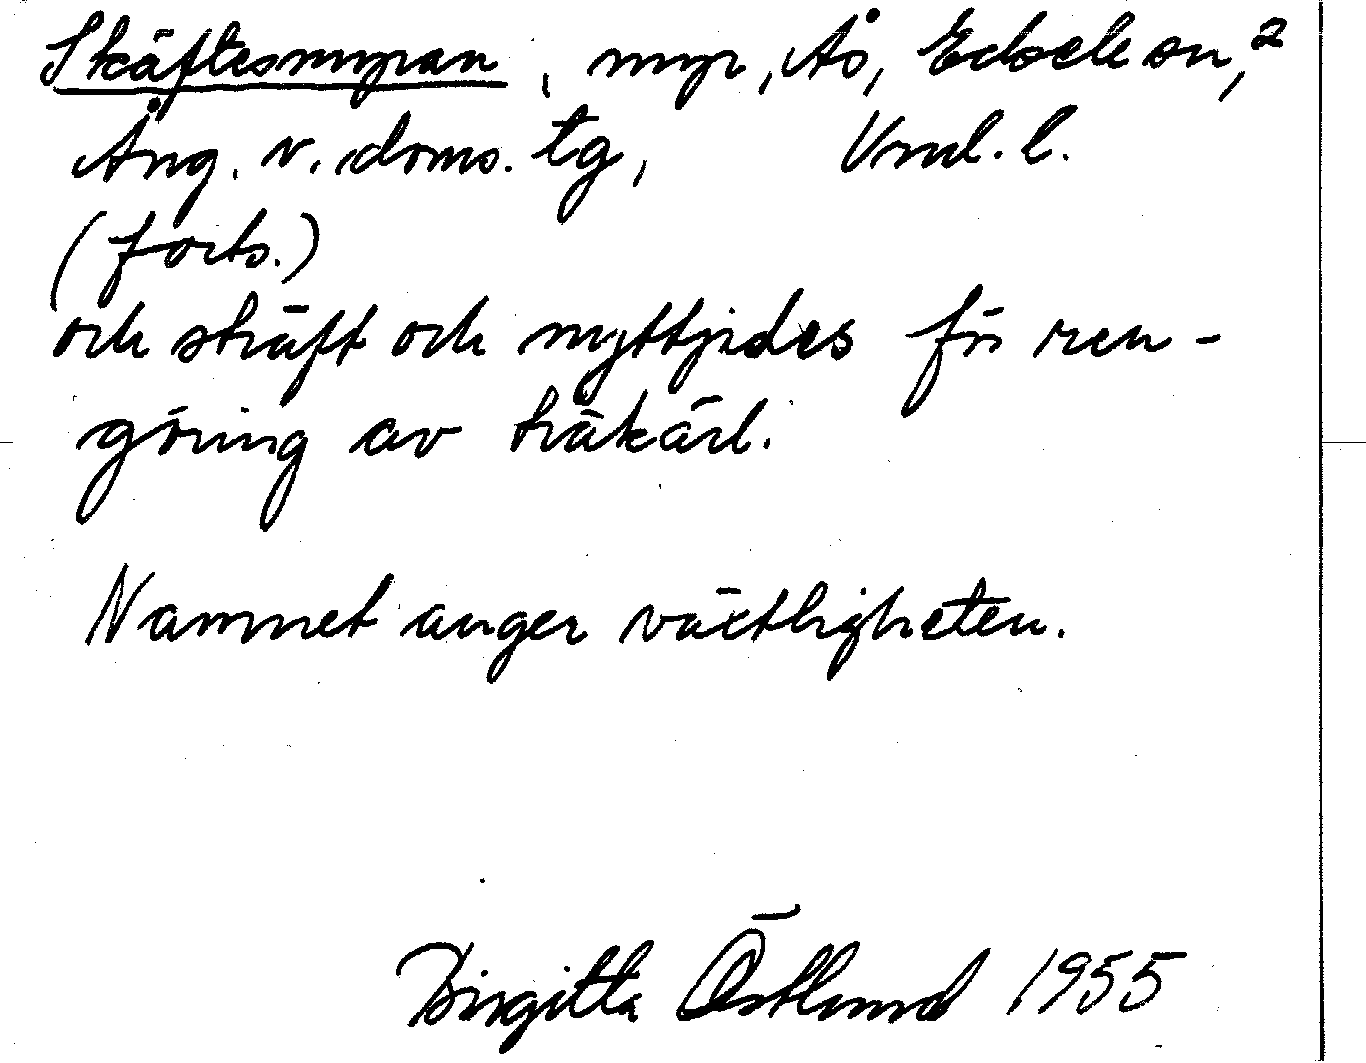 Skäftesmyran, myr, Ås, Edsele sn, 2
Ång. v. doms. tg, Vnl. l.
(forts.)
och sträft och nyttjades för ren-
göring av träkärl.
Namnet anger växtligheten.
Birgitta Östlund 1955